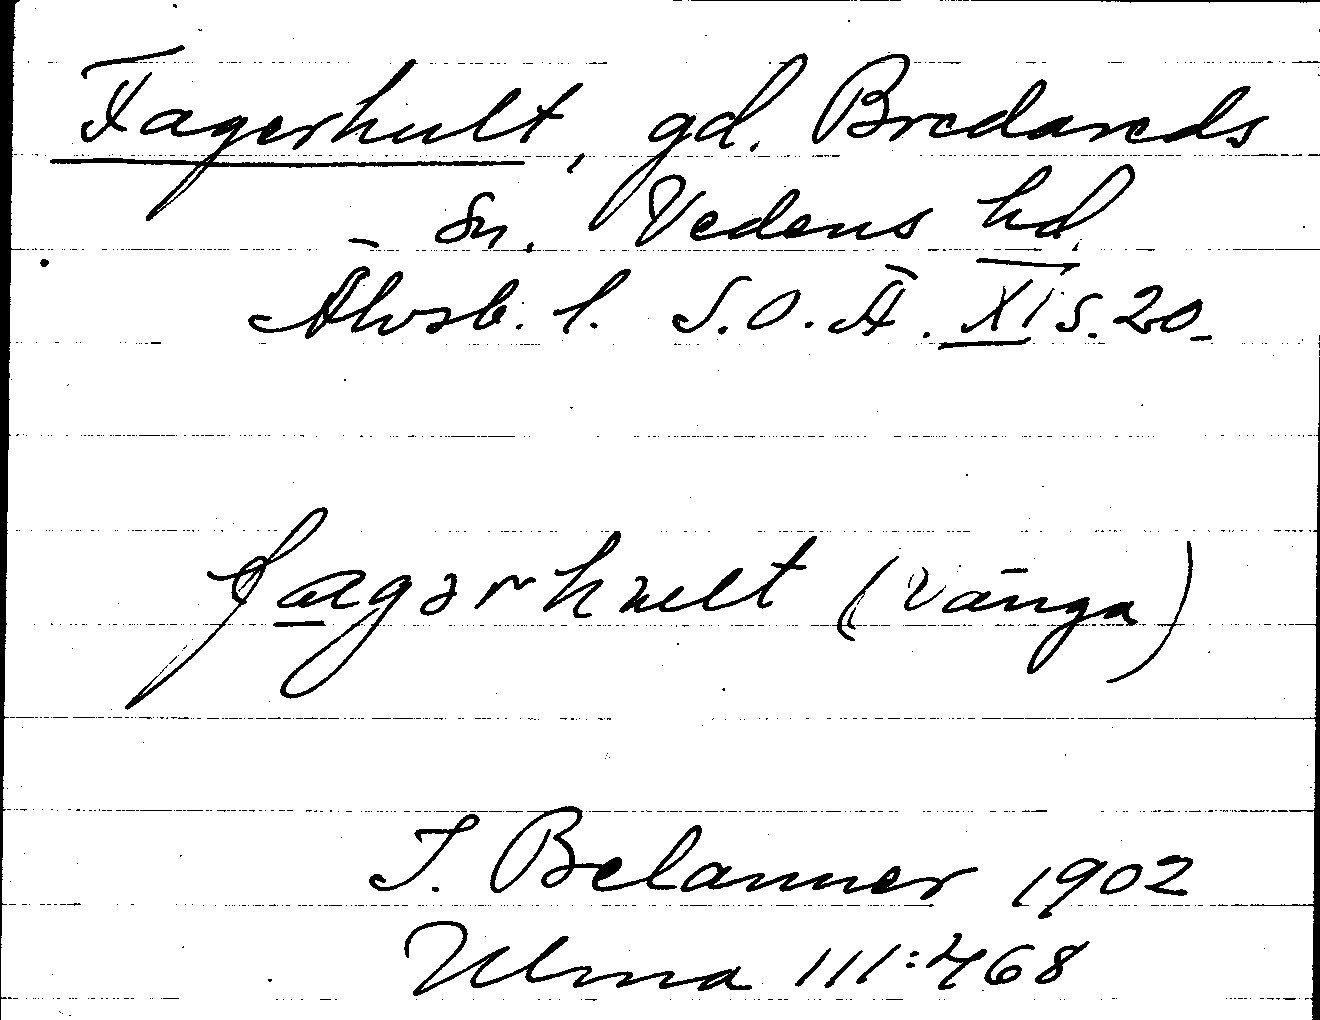 Fagerhult, gd. Bredareds
sn. Vedens hd
Älvsb. l. S.O.Ä. XI s. 20.
fagərhult (Vånga)
T. Belanner 1902
Ulma 111:468